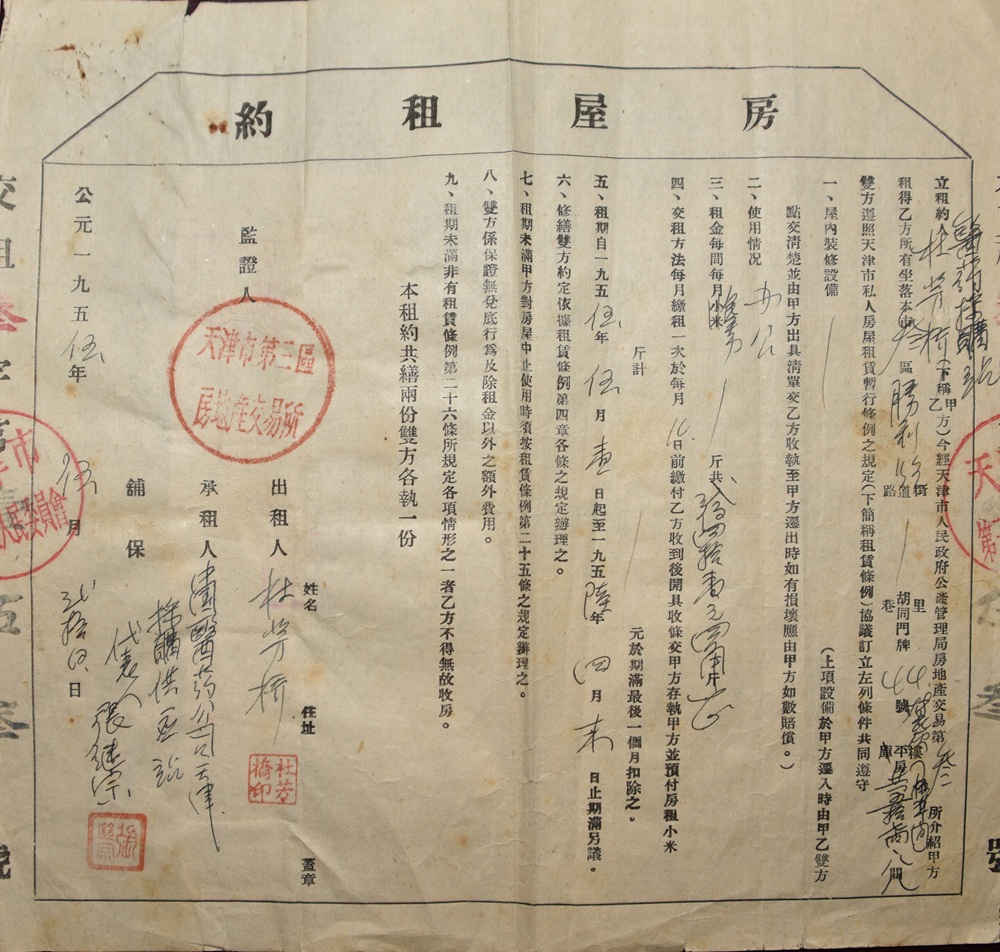 房屋租約
立租約人杜芳橋(下稱甲乙方)今經天津市人民政府公產管理局房地產交易第 所介紹甲方
租得乙方所有坐落本市 區勝利路街道路 里巷胡同門牌44號 樓平房 間
雙方遵照天津市私人房屋租賃暫行條例之規定(下簡稱租賃條例)協議訂立左列條件共同遵守
一、屋內裝修設備 (上項設備於甲方遷入時由甲乙雙方
點交清楚並由甲方出具清單交乙方收執至甲方遷出時如有損壞應由甲方如數賠償。)
二、使用情況 办公
三、租金每間每月小米 斤共 四拾壹元四角正
四、交租方法每月繳租一次於每月 日前繳付乙方收到後開具收條交甲方存執甲方並預付房租小米
斤計 元於期滿最後一個月扣除之。
五、租期自一九五伍年伍月壹日起至一九五陸年四月末日止期滿另議。
六、修繕雙方約定依據租賃條例第四章各條之規定辦理之。
七、租期未滿甲方對房屋中止使用時須按租賃條例第二十五條之規定辦理之。
八、雙方係保證無兌底行為及除租金以外之額外費用。
九、租期未滿非有租賃條例第二十六條所規定各項情形之一者乙方不得無故收房。
本租約共繕兩份雙方各執一份
姓名 住址 蓋章
出租人 杜芳橋
杜芳橋印
承租人 醫葯公司天津
採購供应站
代表人 張継宗
舖保
監證人
天津市第三區
房地產交易所
公元一九五伍年伍月 拾日